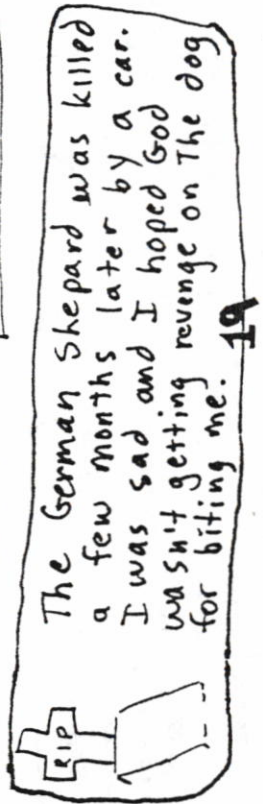 RIP
The German Shepard was killed
a few months later by a car.
I was sad and I hoped God
wasn't getting revenge on The dog
for biting me.
19